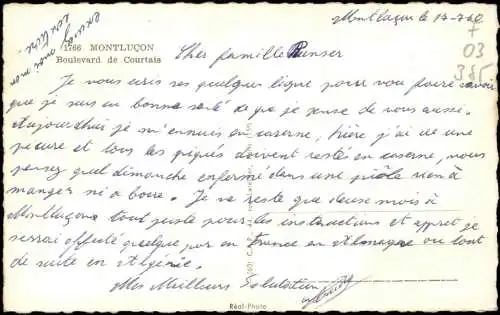 Montluçon le 17-7-60
excusez moi mon
écriture
1766 MONTLUÇON
Boulevard de Courtais
Cher famille
Je vous ecris ses quelque ligne pour vou faire savoir
que je suis en bonne santé de que je pense de vous aussi.
Aujourdhui je m'ennuis en caserne, hière j'ai ue une
picure et tous les piqués doivent resté en caserne, vous
pensez quel dimanche enfermé dans une piôle rien à
manger ni a boire. Je ne reste que deux mois à
Montluçon tout juste pour les instructions et apret je
serrai affecté quelque par en France en Allmagne ou tout
de suite en Algérie.
Mes Meilleurs Salutation
Réal-Photo
03